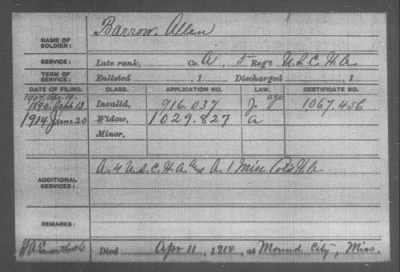 NAME OF SOLDIER: Barrow, Allen
SERVICE: Late rank, Co. A, 5 Reg't U.S.C.H.A
TERM OF SERVICE: Enlisted , 1 Discharged , 1
DATE OF FILING. CLASS. APPLICATION NO. LAW. CERTIFICATE NO.
1890 Sept 13 Invalid, 916.037 1067.456
1914 June 20 Widow, 1029.827 a
Minor,
ADDITIONAL SERVICES: A. 4 U.S.C.H.A. A. 1 Miss H.A
REMARKS:
Died Apr 11, 1914, at Mound City, Miss.